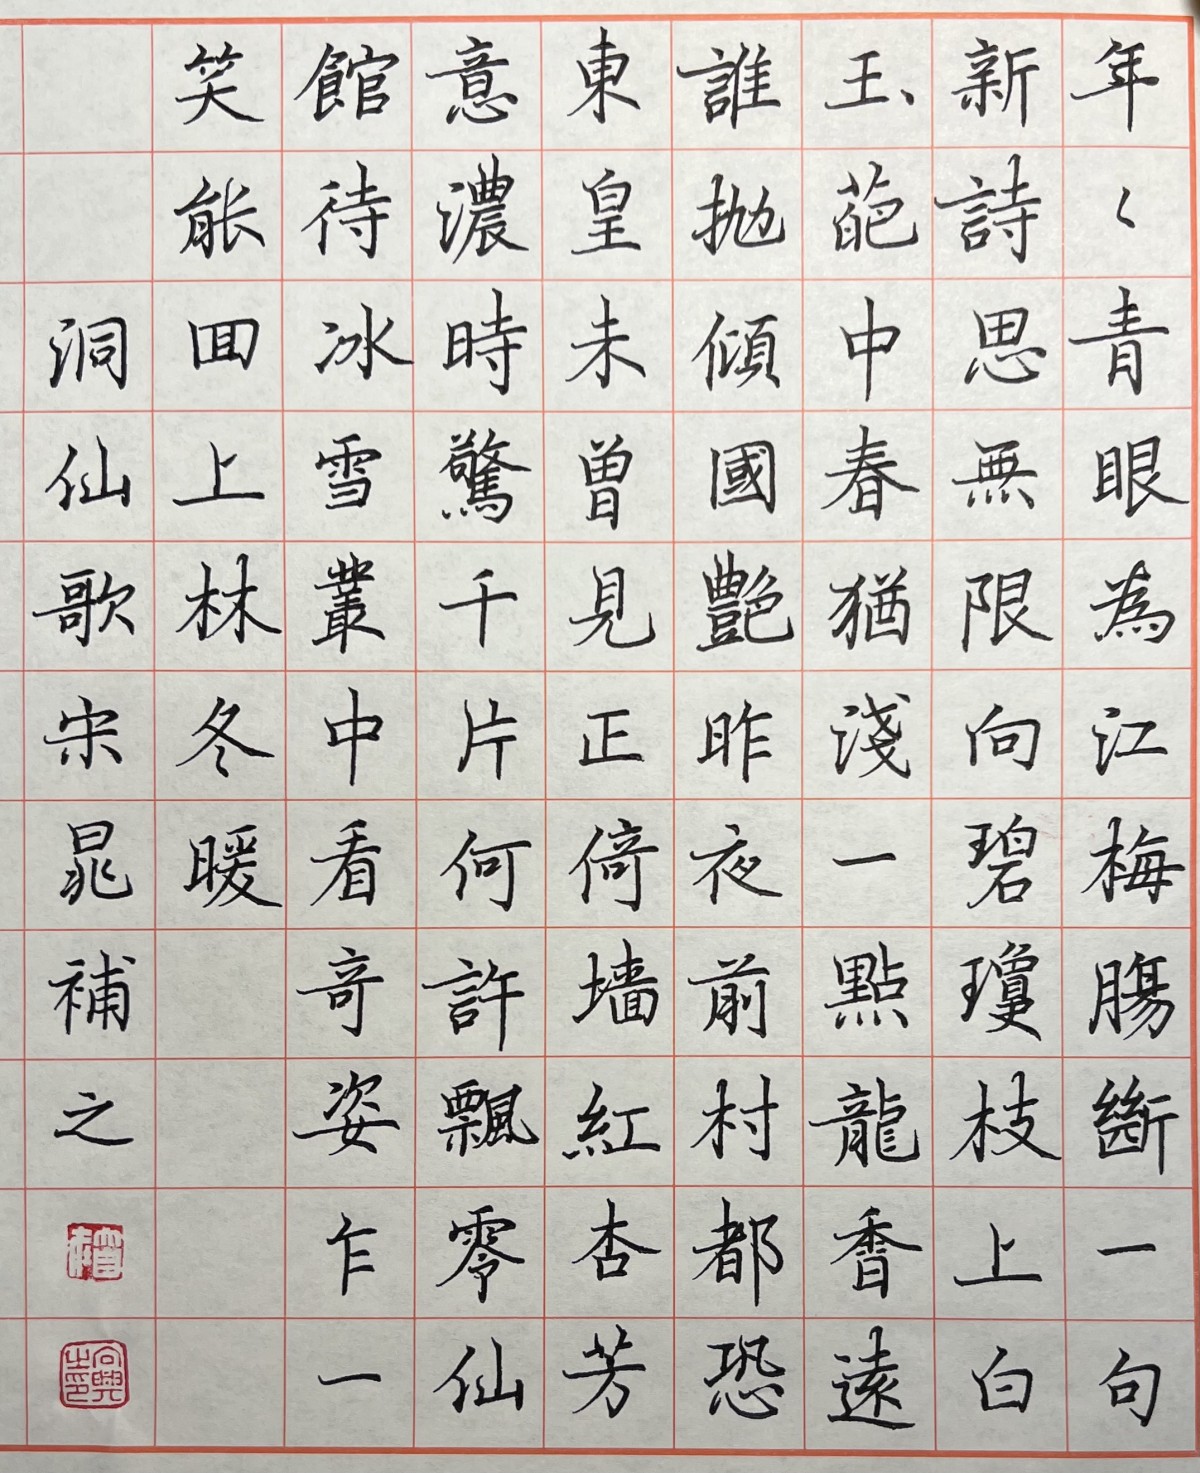 年〻青眼為江梅腸斷一句
新詩思無限向碧瓊枝上白
玉葩中春猶淺一點龍香遠
誰抛傾國艷昨夜前村都恐
東皇未曾見正倚墙紅杏芳
意濃時驚千片何許飄零仙
館待冰雪叢中看奇姿乍一
笑能回上林冬暖
洞仙歌宋晁補之